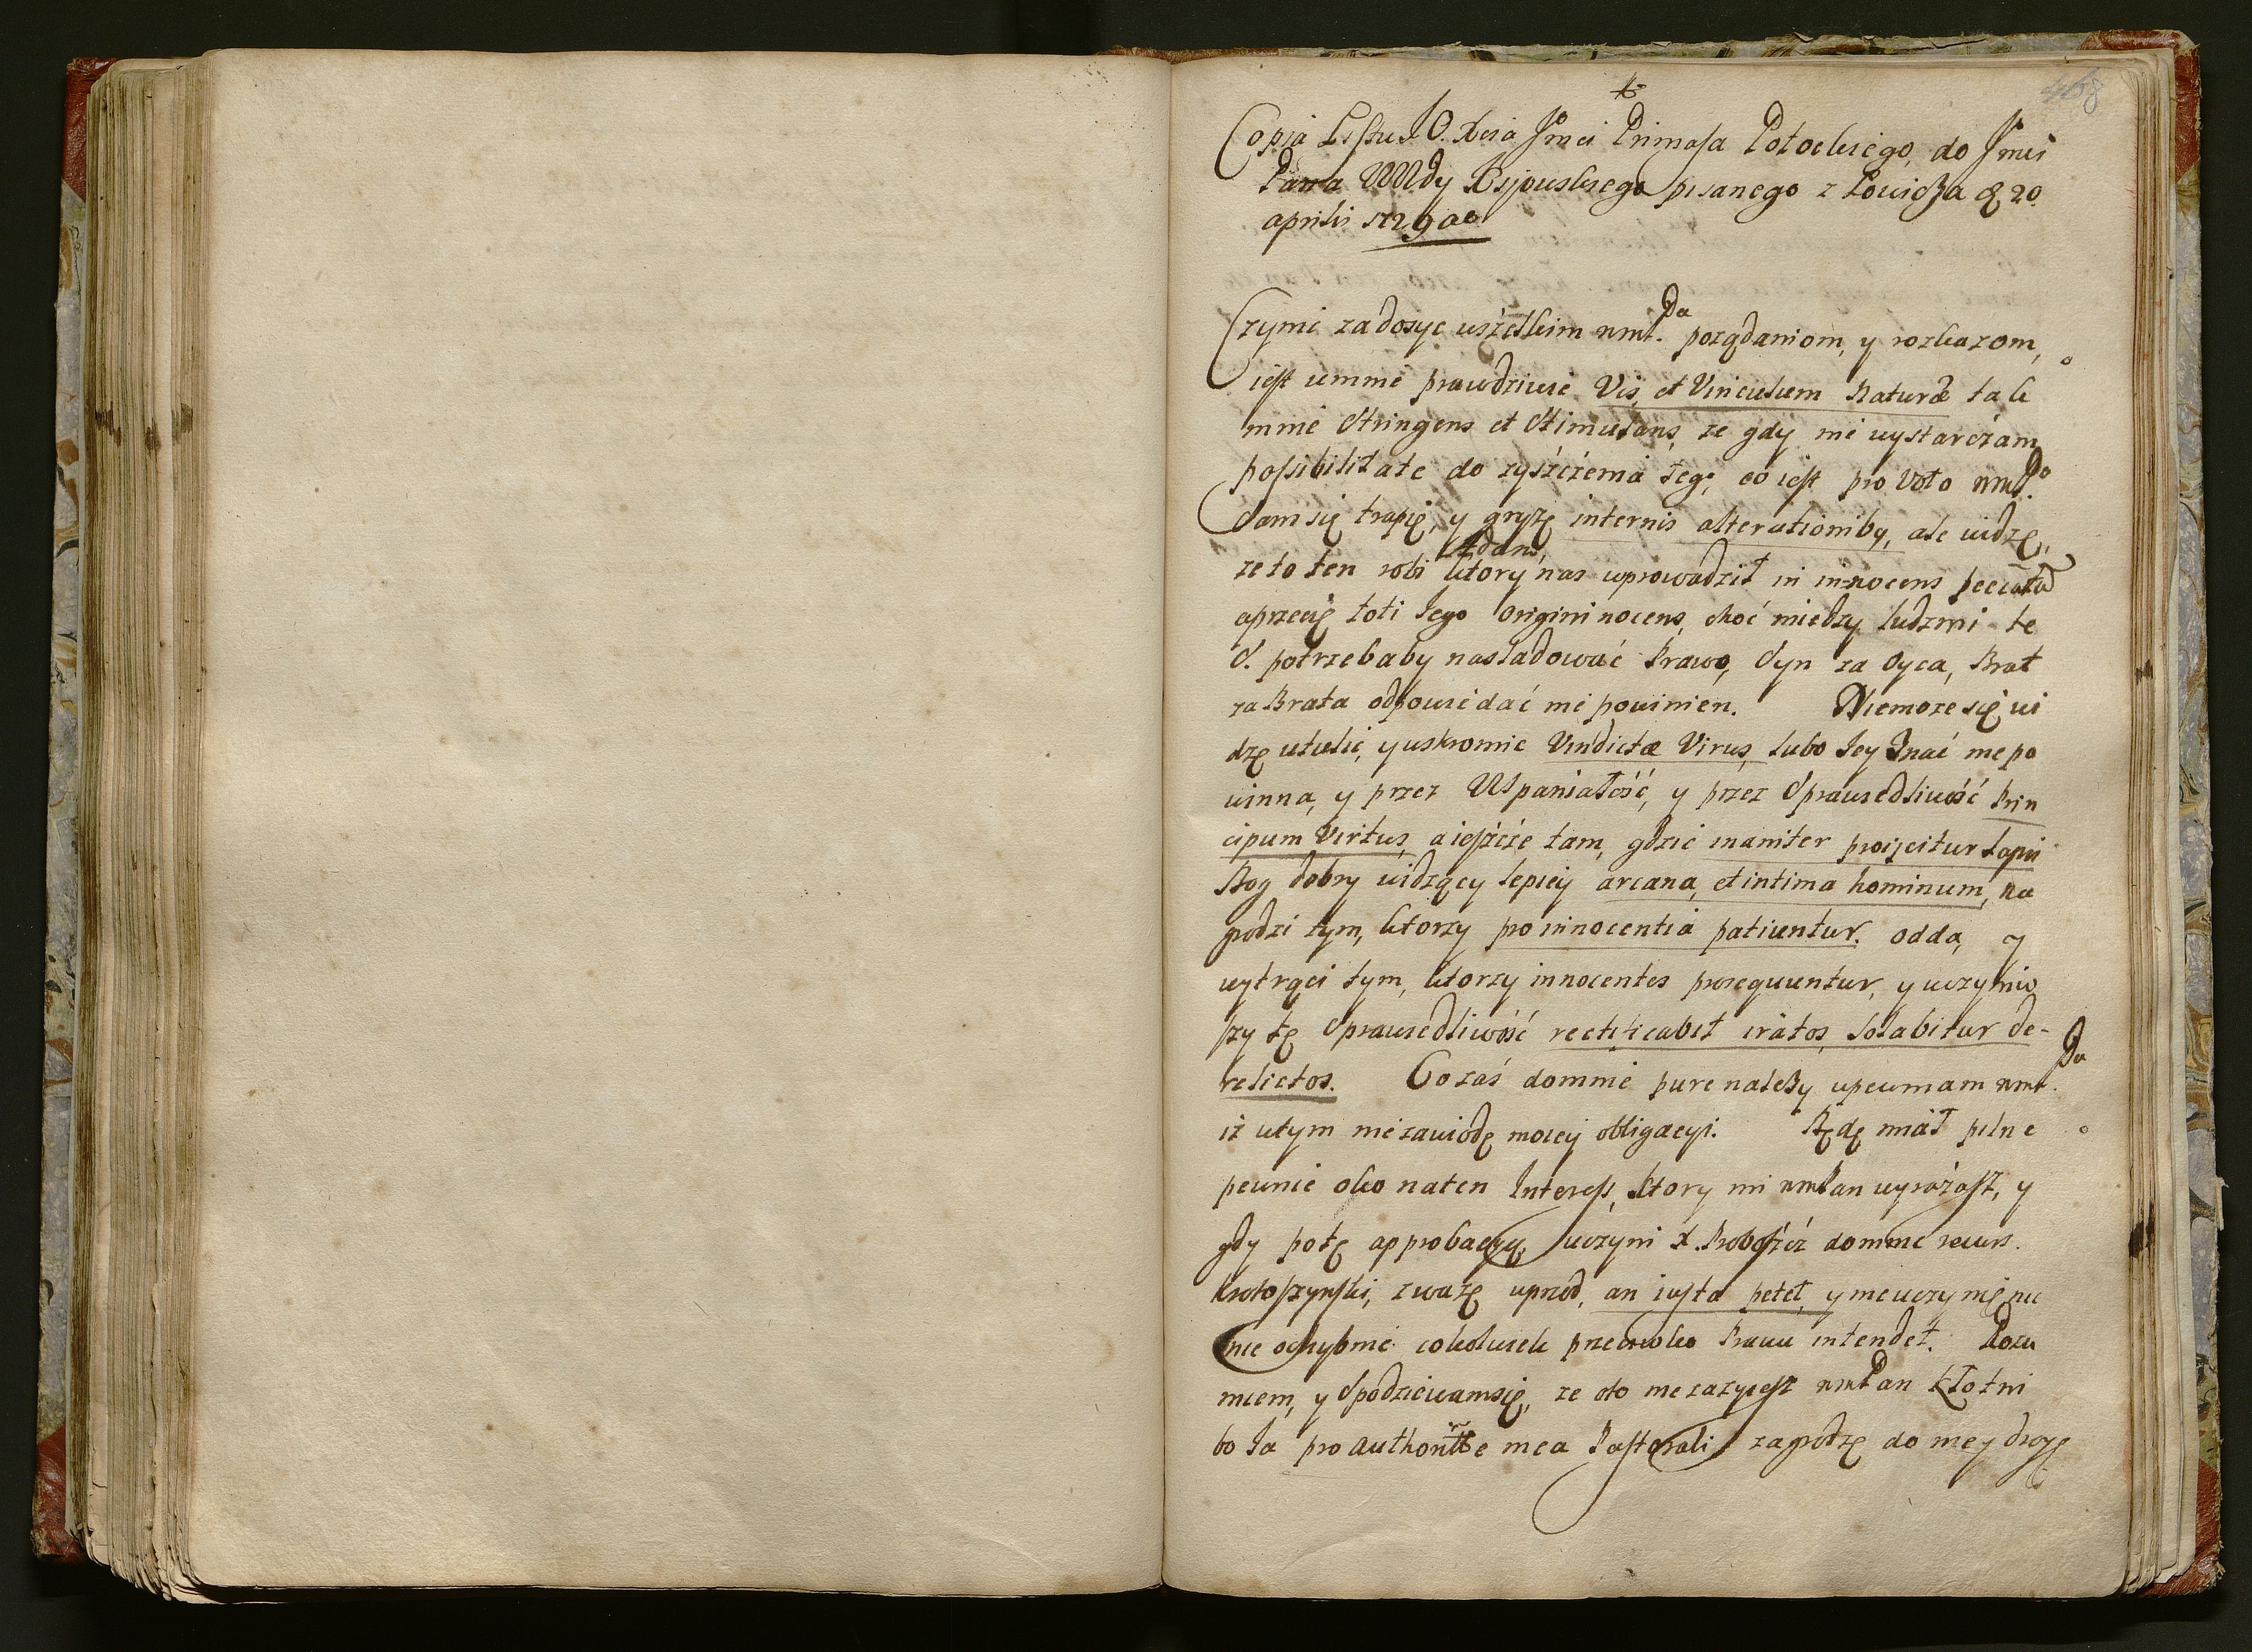 468
Copia Listu J. O. Xcia Jmci Primasa Potockiego, do Jmci
Pana WWdy Kijowskiego pisanego z Łowicza d. 20
aprilis 1729 ao
Czynić zadosyc wszetkim wmc. Pa pożądaniom, y rozkazom,
iest wmmie prawdziwie Vis, et Vinculum Naturæ tak
mnie Stringens et Stimulans, że gdy nie wystarczam
possibilitate do zyszczenia tego, co iest pro Voto wmc. Pa
sam się trapię, y gryzę internis alterationiby, ale widzę,
że to ten robi ktory nas Adam, wprowadził in innocens peccatū
aprzecię toti Jego origini nocens, choć między ludzmi te
S. potrzebaby nasladować Prawo, Syn za Oyca, Brat
za Brata odpowiedać nie powinien. Niemoże się wi
dzę utulić, y uskromic Vindictæ Virus, lubo Jey Znać nie po
winna, y przez Wspaniałość, y przez Sprawiedliwość Prin
cipum Virtus, a ieszcze tam, gdzie inaniter proijcitur lapis
Bog dobry widzący lepiey arcana, et intima hominum, na
grodzi tym, ktorzy pro innocentia patiuntur. odda, y
wytrąci tym, ktorzy innocentes persequuntur, y uczyniw
szy tę Sprawiedliwość rectificabit iratos, solabitur de-
relictos. Co zaś domnie pure należy upewniam wmc. Pa
iż wtym nie zawiodę moiey obligacyi. Będę miał pilne
pewnie oko naten Interess, ktory mi wmPan wyrażasz, y
gdy potę approbacyą uczyni X. Proboszcz domnie recurs.
Krotoszynski, zważę wprzod, an iusta petet, y nieuczynię nu
nie ochybnie cokolwiek przeciwko Prawu intendet. Rozu
miem, y Spodziewamsię, że do nie zażyiesz wmPan kłotni
bo Ja pro authoritte mea Pastorali zagrodzę do niey drogę